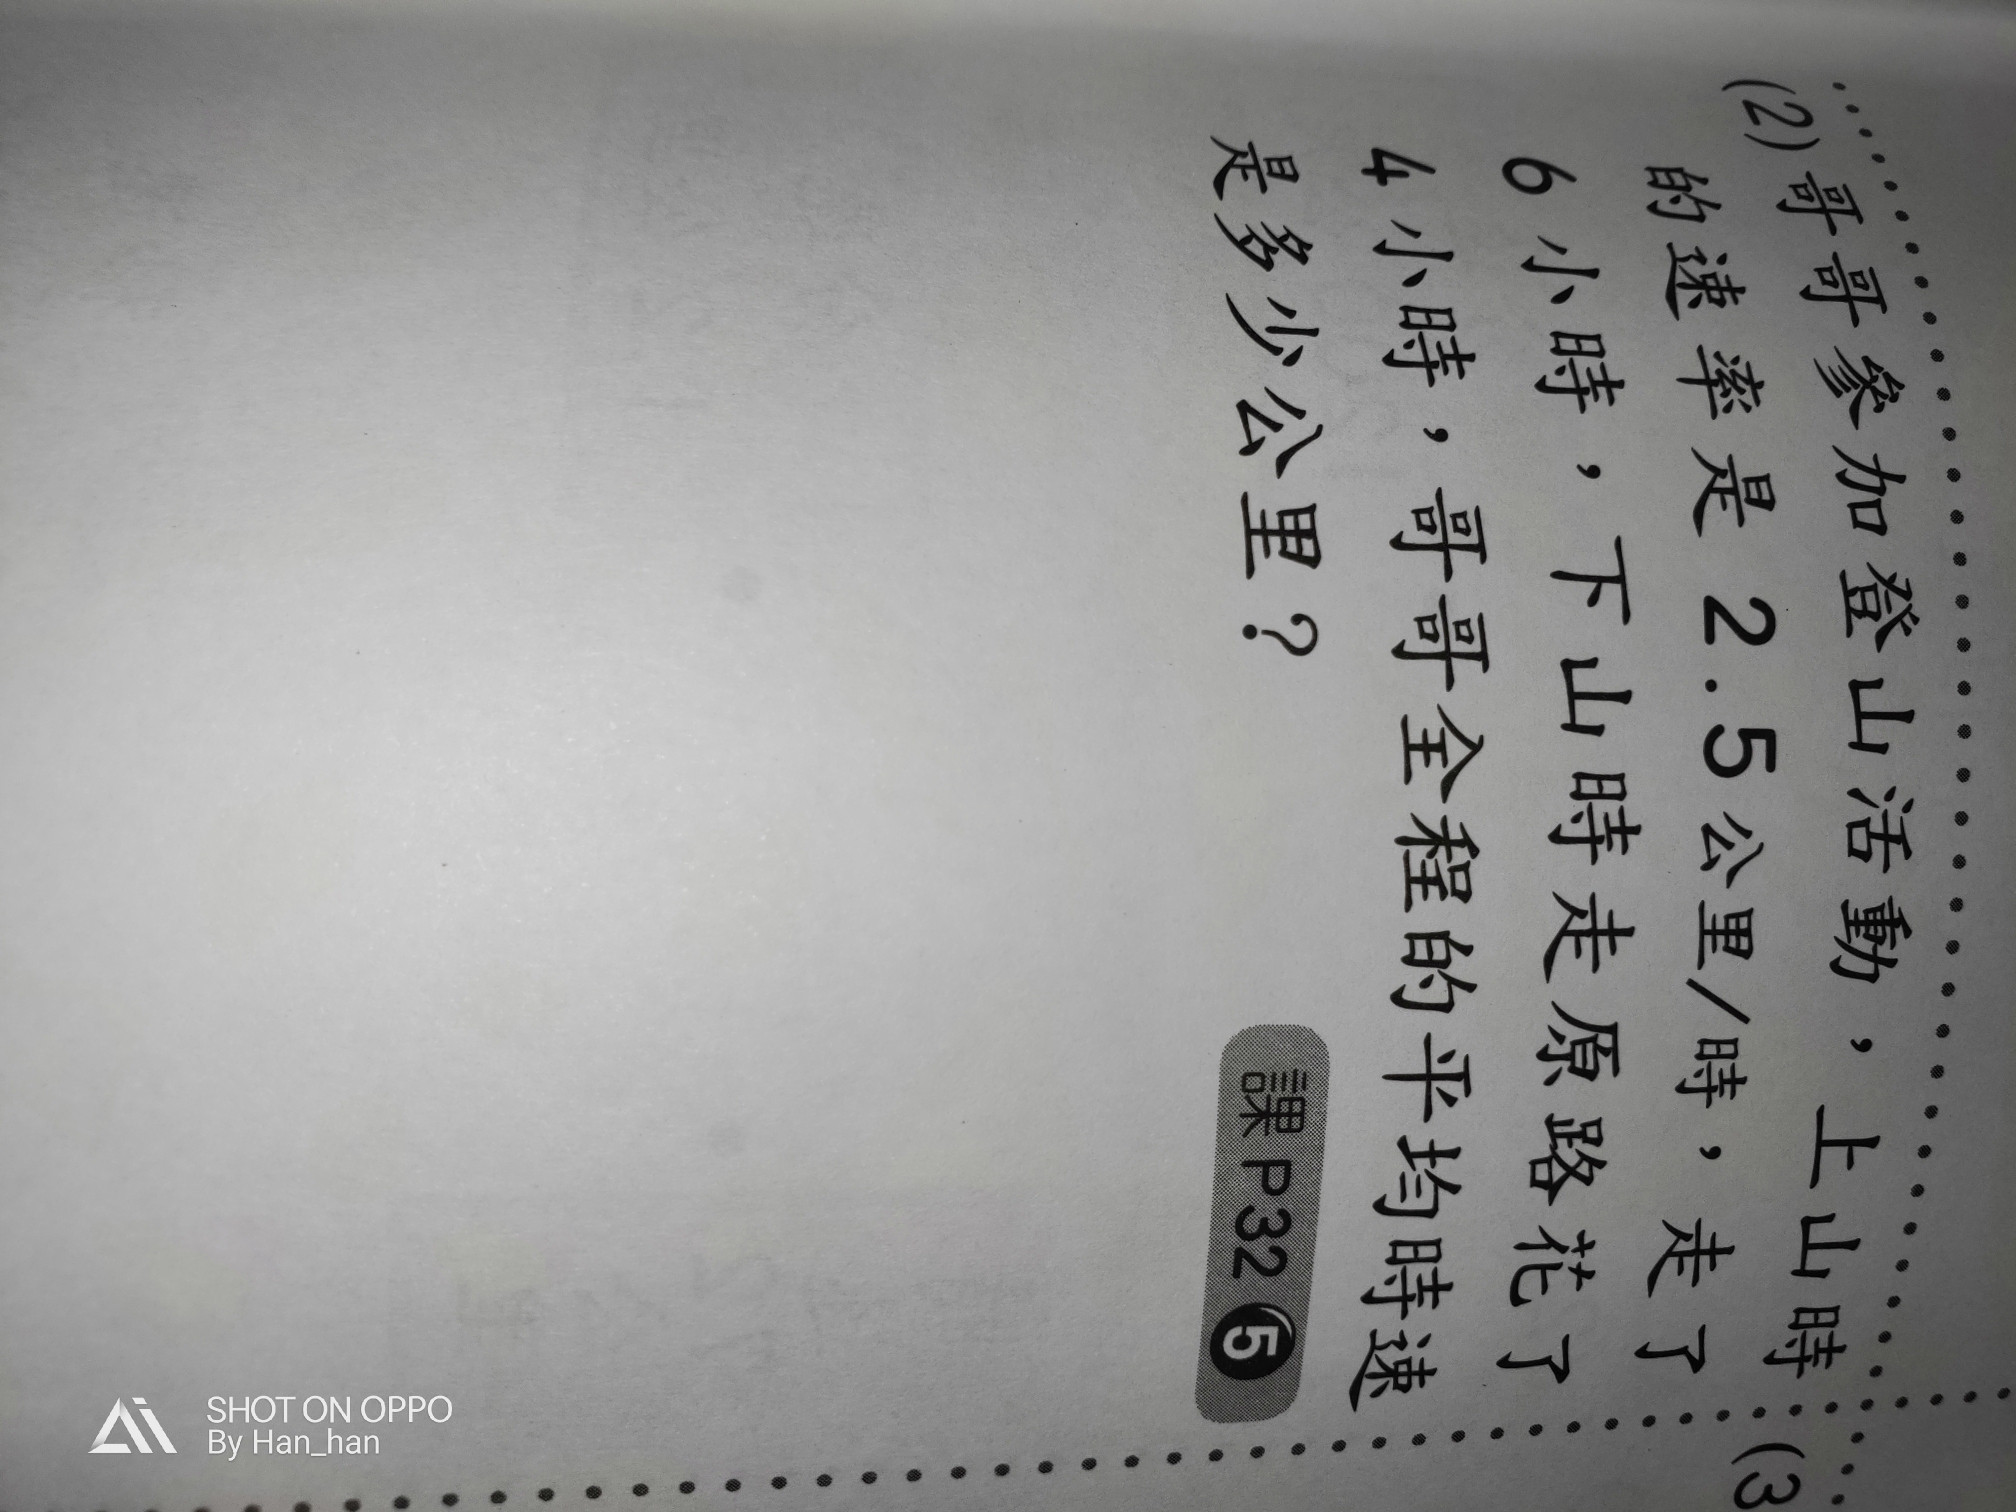 (2)哥哥參加登山活動，上山時
的速率是2.5公里/時，走了
6小時，下山時走原路花了
4小時，哥哥全程的平均時速
是多少公里？
課P32 5
(3
SHOT ON OPPO
By Han_han